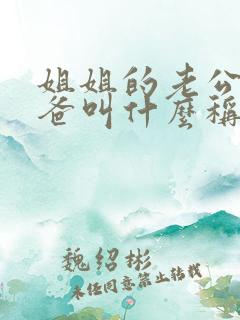 姐姐的老公
爸叫什麼稱
魏绍彬
未经同意禁止转载